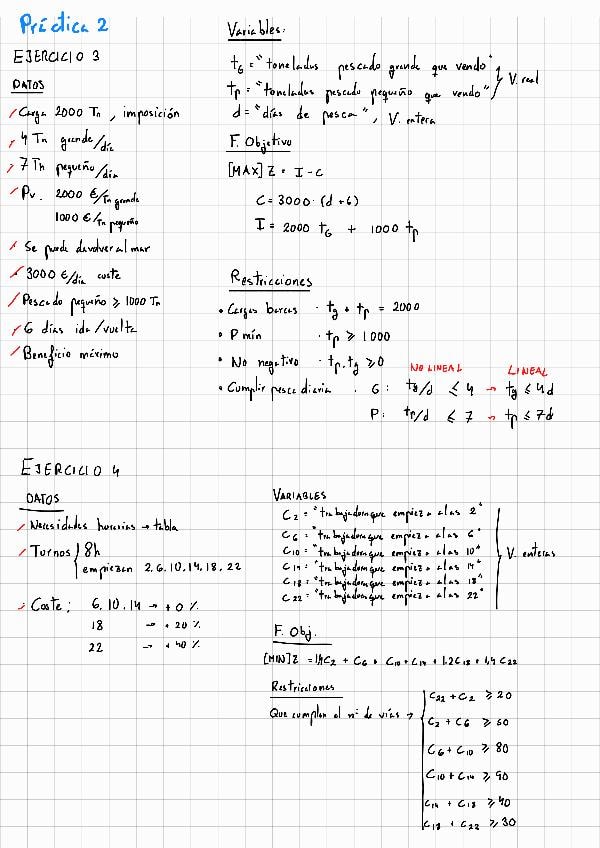 Práctica 2
EJERCICIO 3
DATOS
Carga 2000 Tn, imposición
4 Tn grande/día
7 Tn pequeño/día
Pv. 2000 €/Tn grande
1000 €/Tn pequeño
Se puede devolver al mar
3000 €/día coste
Pescado pequeño ≥ 1000 Tn
6 días ida/vuelta
Beneficio máximo
Variables:
tG = "toneladas pescado grande que vendo"
tp = "toneladas pescado pequeño que vendo"
V. real
d = "días de pesca", V. entera
F. Objetivo
[MAX] Z = I - C
C = 3000 · (d + 6)
I = 2000 tG + 1000 tp
Restricciones
• Cargas barcos · tg + tp = 2000
• P mín · tp ≥ 1000
• No negativo · tp, tg ≥ 0
NO LINEAL LINEAL
• Cumplir pesca diaria . G: tg/d ≤ 4 → tg ≤ 4d
P: tp/d ≤ 7 → tp ≤ 7d
EJERCICIO 4
DATOS
Necesidades horarias → tabla
Turnos 8h
empiezan 2, 6, 10, 14, 18, 22
Coste: 6, 10, 14 → + 0 %
18 → + 20 %
22 → + 40 %
VARIABLES
C2 = "trabajadores que empieza a las 2"
C6 = "trabajadores que empieza a las 6"
C10 = "trabajadores que empieza a las 10"
C14 = "trabajadores que empieza a las 14"
C18 = "trabajadores que empieza a las 18"
C22 = "trabajadores que empieza a las 22"
V. enteras
F. Obj.
[MIN] Z = 1,4C2 + C6 + C10 + C14 + 1.2C18 + 1,4 C22
Restricciones
Que cumplan el nº de vías →
C22 + C2 ≥ 20
C2 + C6 ≥ 60
C6 + C10 ≥ 80
C10 + C14 ≥ 90
C14 + C18 ≥ 40
C18 + C22 ≥ 30